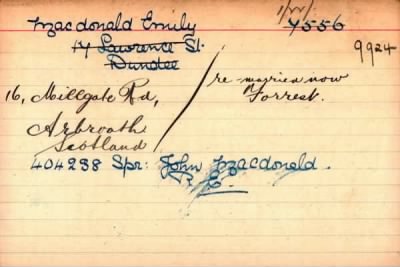 Macdonald Emily 1/W/. 4556
14 Lawrence St. 9924
Dundee
16, Millgate Rd, re-married now
Forrest.
Arbroath
Scotland
404238 Spr: John Macdonald.
R.E.